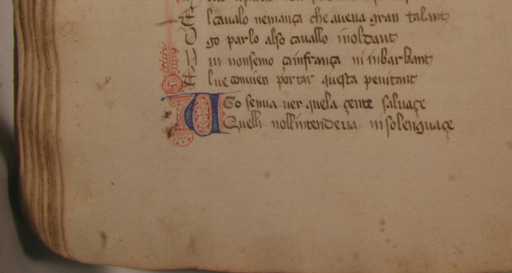 l cavalo nemança che avena gran talant
go parlo also cavallo inoltant
ni nonsemo çainfrança ni inbarbant
l ve conven portar questa penitant
Ugo senna ver quela çente salvaçe
Quelli noll'intendeva ni so lenguaçe